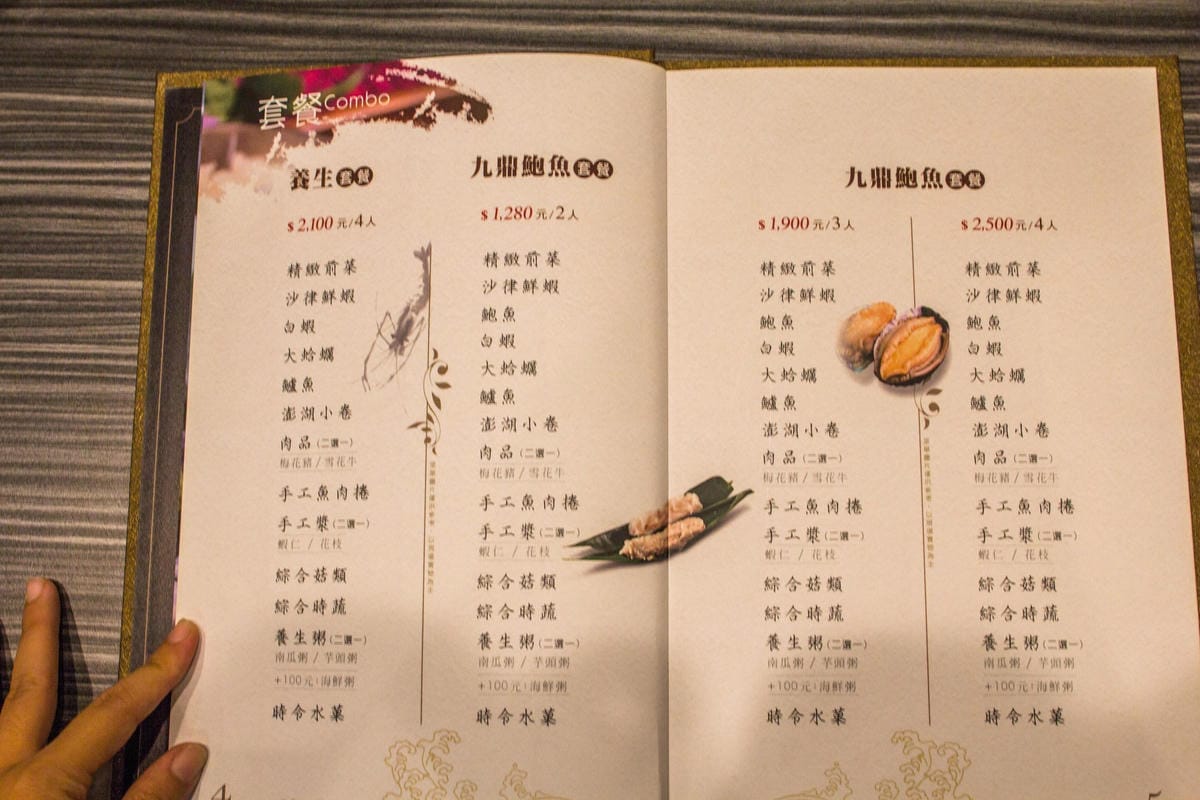 套餐 Combo
養生套餐
$2,100元/4人
精緻前菜
沙律鮮蝦
白蝦
大蛤蠣
鱸魚
澎湖小卷
肉品(二選一)
梅花豬/雪花牛
手工魚肉捲
手工漿(二選一)
蝦仁 / 花枝
綜合菇類
綜合時蔬
養生粥(二選一)
南瓜粥 / 芋頭粥
+100元:海鮮粥
時令水菓
九鼎鮑魚套餐
$1,280元/2人
精緻前菜
沙律鮮蝦
鮑魚
白蝦
大蛤蠣
鱸魚
澎湖小卷
肉品(二選一)
梅花豬/雪花牛
手工魚肉捲
手工漿(二選一)
蝦仁 / 花枝
綜合菇類
綜合時蔬
養生粥(二選一)
南瓜粥 / 芋頭粥
+100元:海鮮粥
時令水菓
九鼎鮑魚套餐
$1,900元/3人
精緻前菜
沙律鮮蝦
鮑魚
白蝦
大蛤蠣
鱸魚
澎湖小卷
肉品(二選一)
梅花豬/雪花牛
手工魚肉捲
手工漿(二選一)
蝦仁 / 花枝
綜合菇類
綜合時蔬
養生粥(二選一)
南瓜粥 / 芋頭粥
+100元:海鮮粥
時令水菓
$2,500元/4人
精緻前菜
沙律鮮蝦
鮑魚
白蝦
大蛤蠣
鱸魚
澎湖小卷
肉品(二選一)
梅花豬/雪花牛
手工魚肉捲
手工漿(二選一)
蝦仁 / 花枝
綜合菇類
綜合時蔬
養生粥(二選一)
南瓜粥 / 芋頭粥
+100元:海鮮粥
時令水菓
4
5